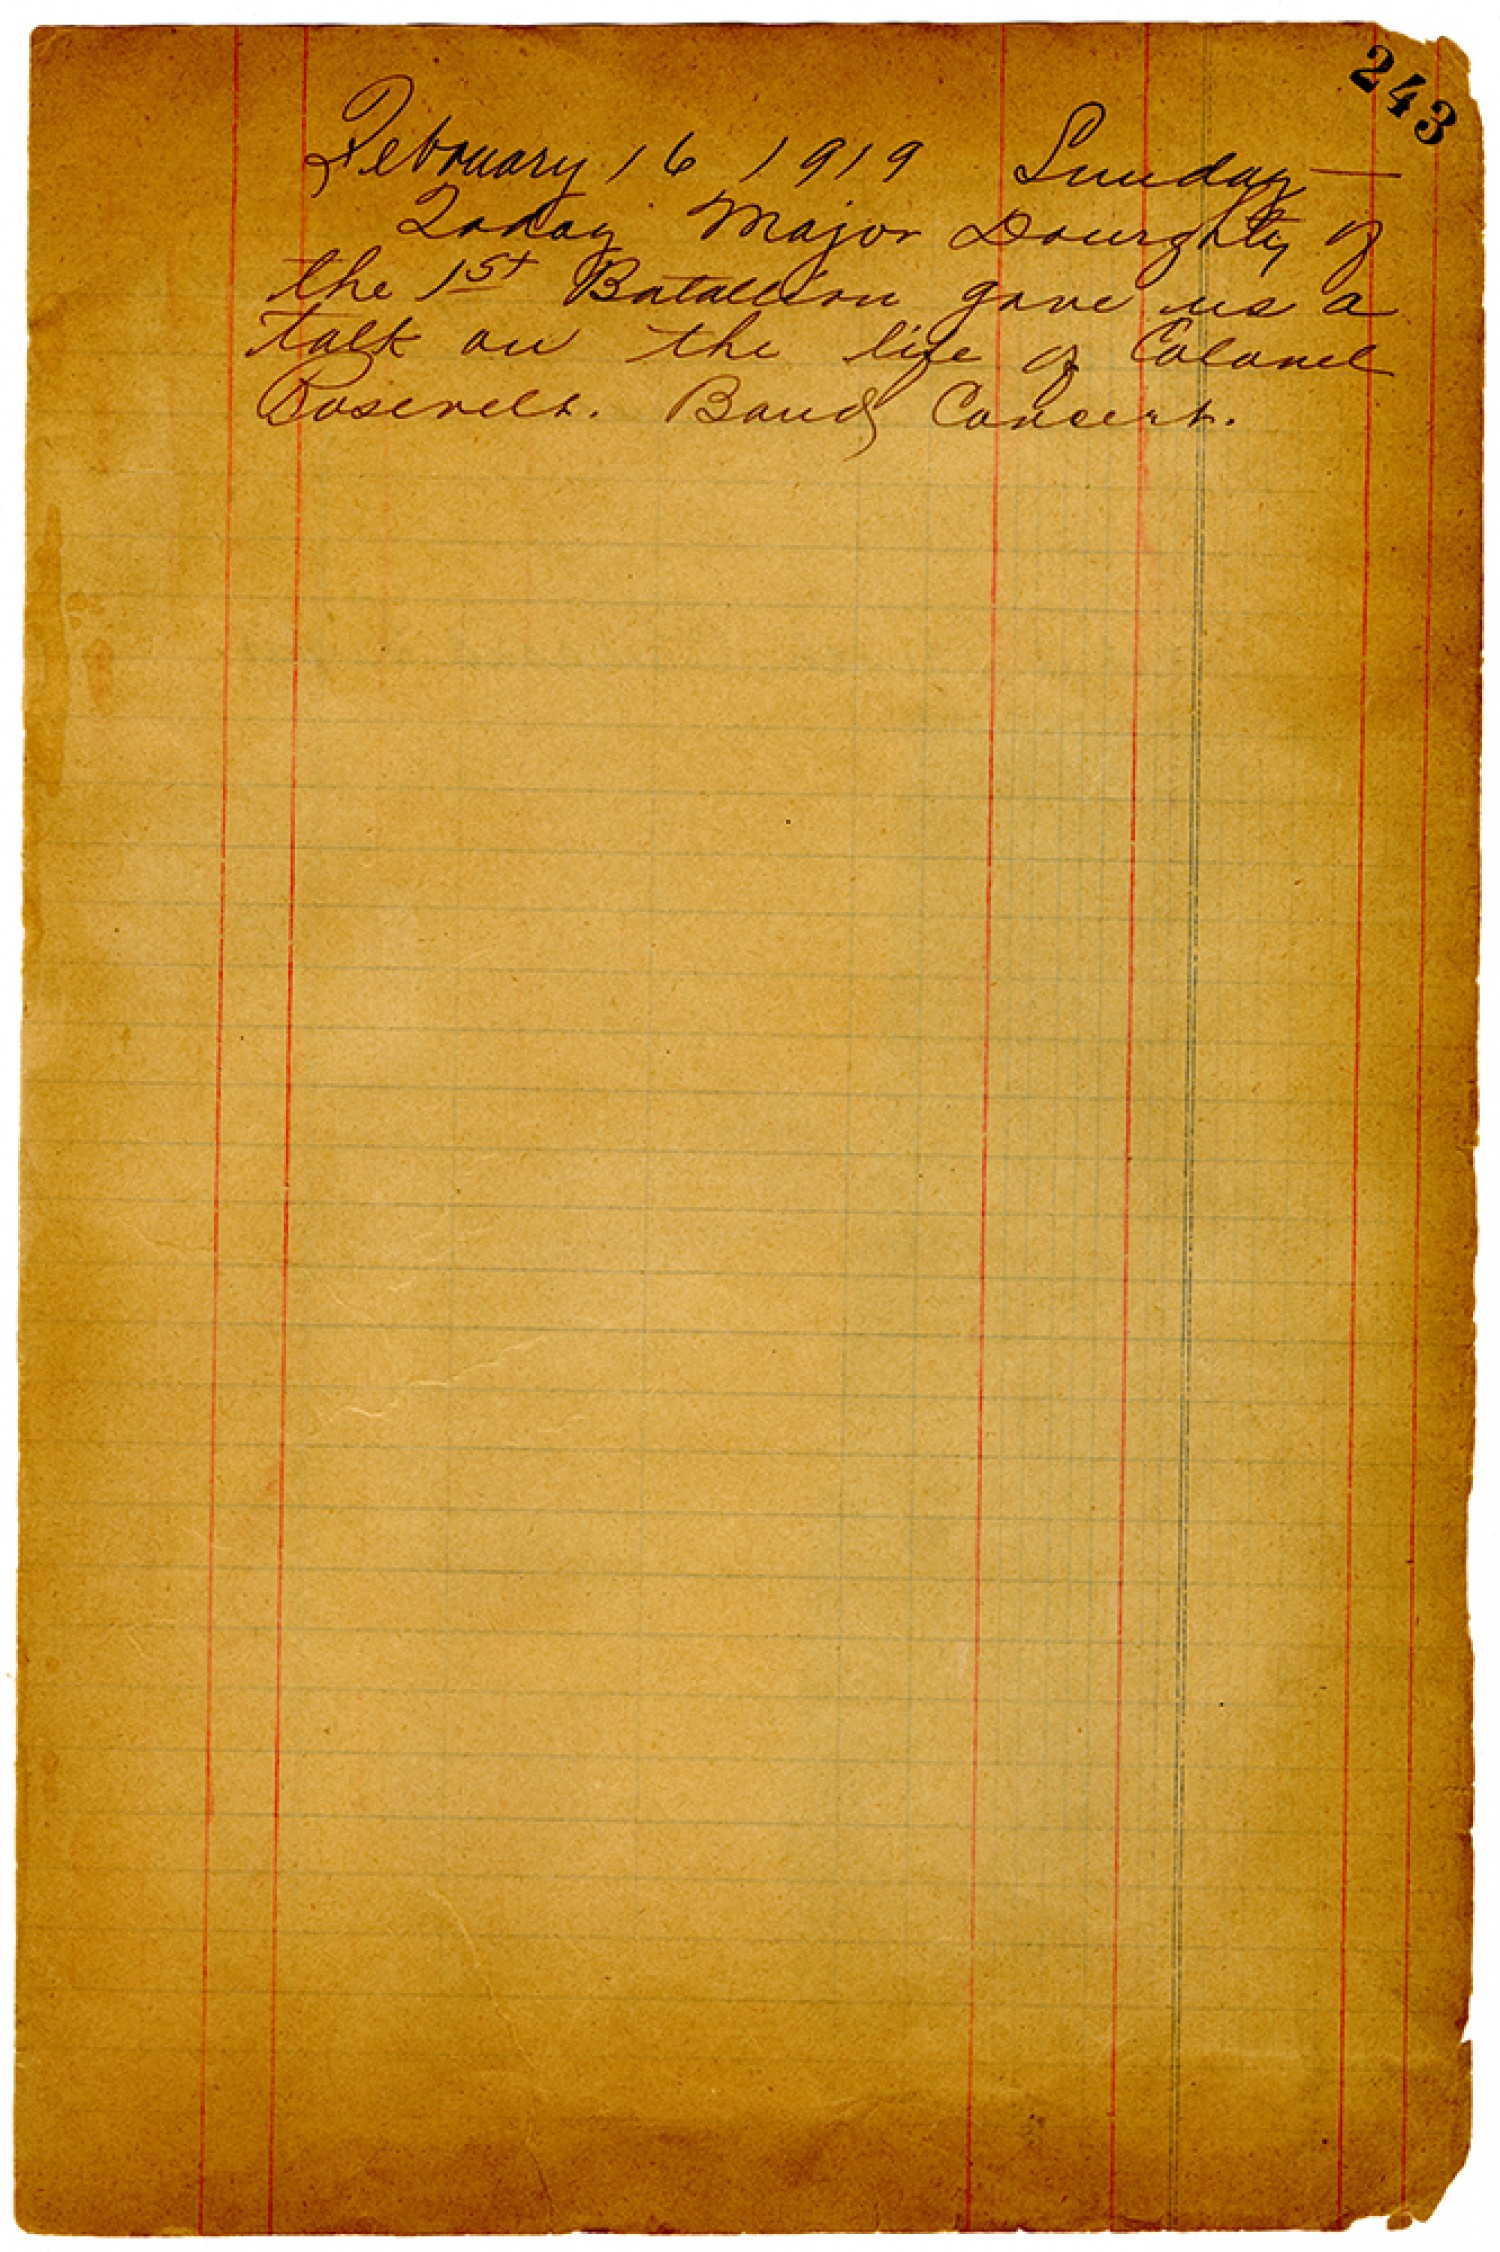 243
February 16 1919 Sunday —
Today Major Dourghty of
the 1st Batallion gave us a
talk on the life of Colonel
Rosevelt. Band Concert.